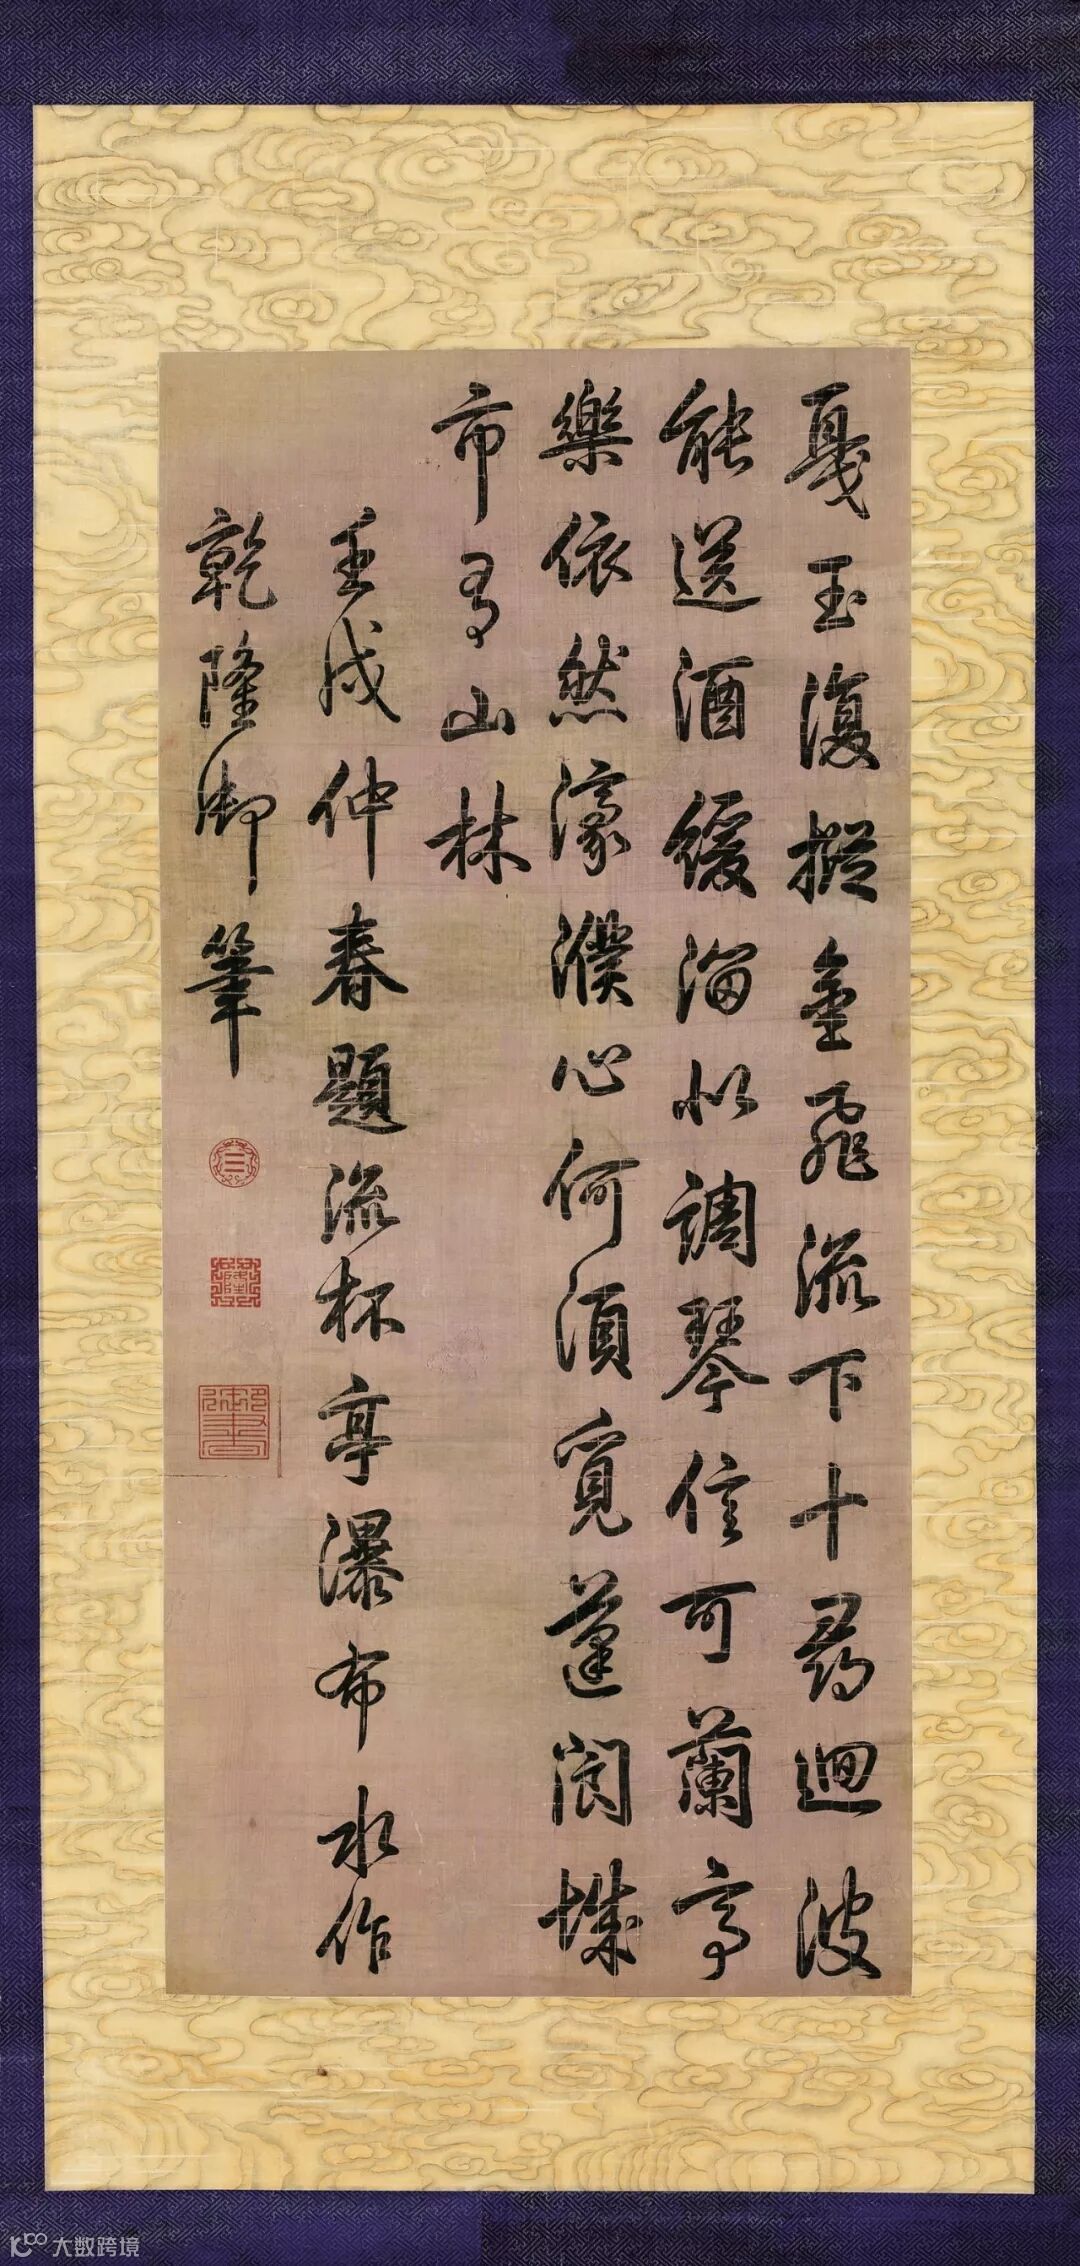 戛玉復摐金飛流下十尋迴波
能送酒緩溜似調琴信可蘭亭
樂依然濠濮心何須覓蓬閬城
市有山林
壬戌仲春題流杯亭瀑布水作
乾隆御筆
三
大数跨境